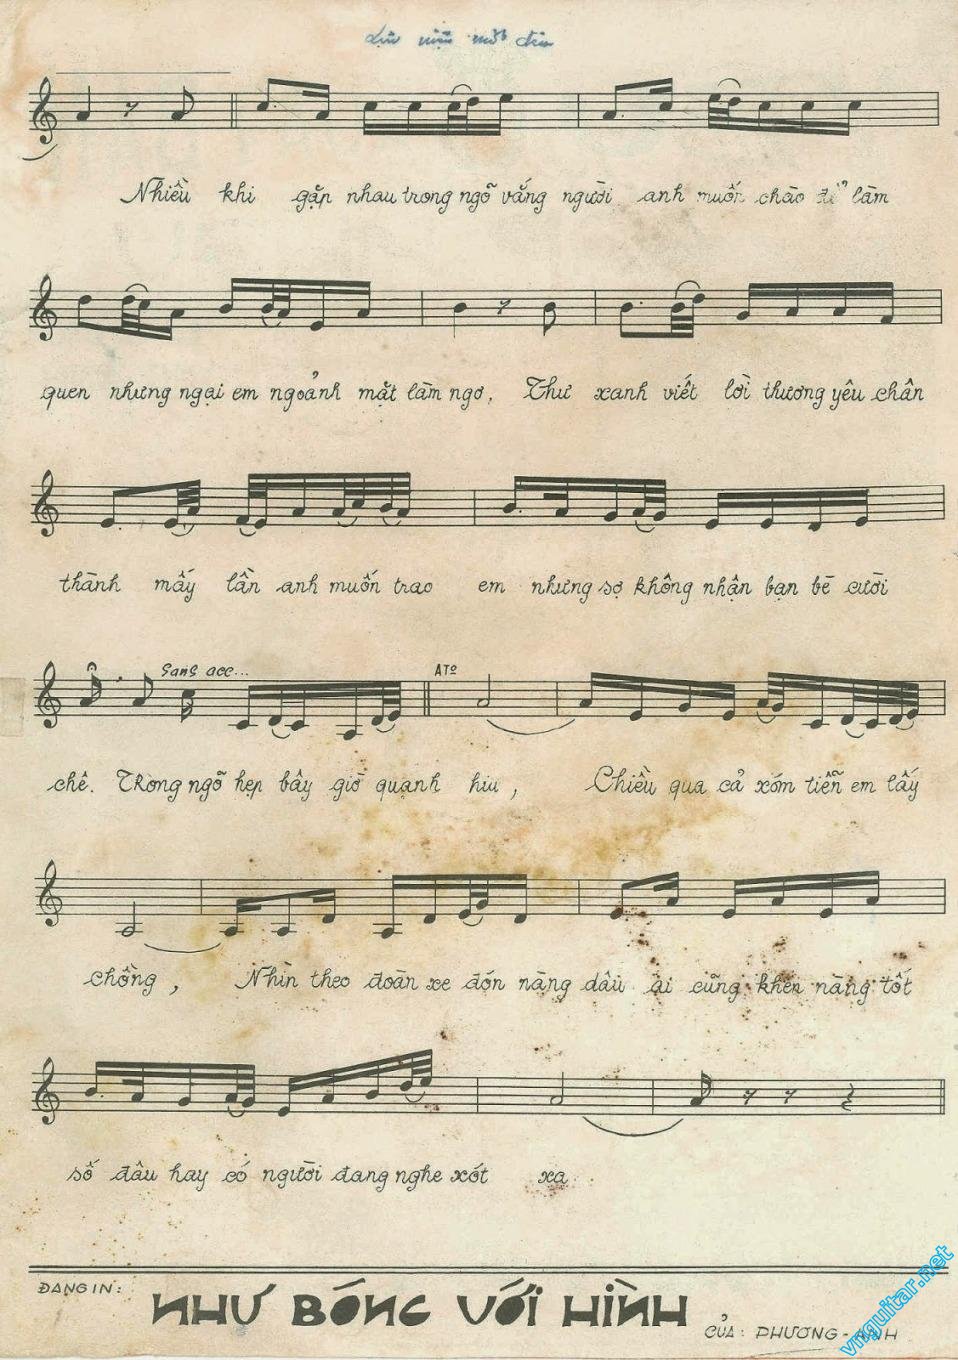 Nhiều khi gặp nhau trong ngõ vắng người anh muốn chào để làm
quen nhưng ngại em ngoảnh mặt làm ngơ, Thư xanh viết lời thương yêu chân
thành mấy lần anh muốn trao em nhưng sợ không nhận bạn bè cười
Sans acc... ATO
chê. Trong ngõ hẹp bây giờ quạnh hiu, Chiều qua cả xóm tiễn em lấy
chồng, Nhìn theo đoàn xe đón nàng dâu ai cũng khen nàng tốt
số đâu hay có người đang nghe xót xa
ĐANG IN: NHƯ BÓNG VỚI HÌNH
CỦA: PHƯƠNG-ANH
vnguitar.net